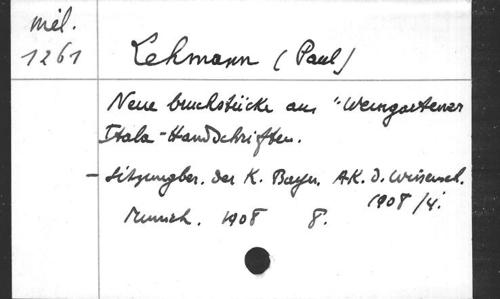 mél.
1261
Lehmann (Paul)
Neue bruchstücke aus "Weingartener
Itala-Handschriften.
- Sitzungber. der K. Bayer. AK. d. Wissensch.
1908/4.
Munich. 1908 8.